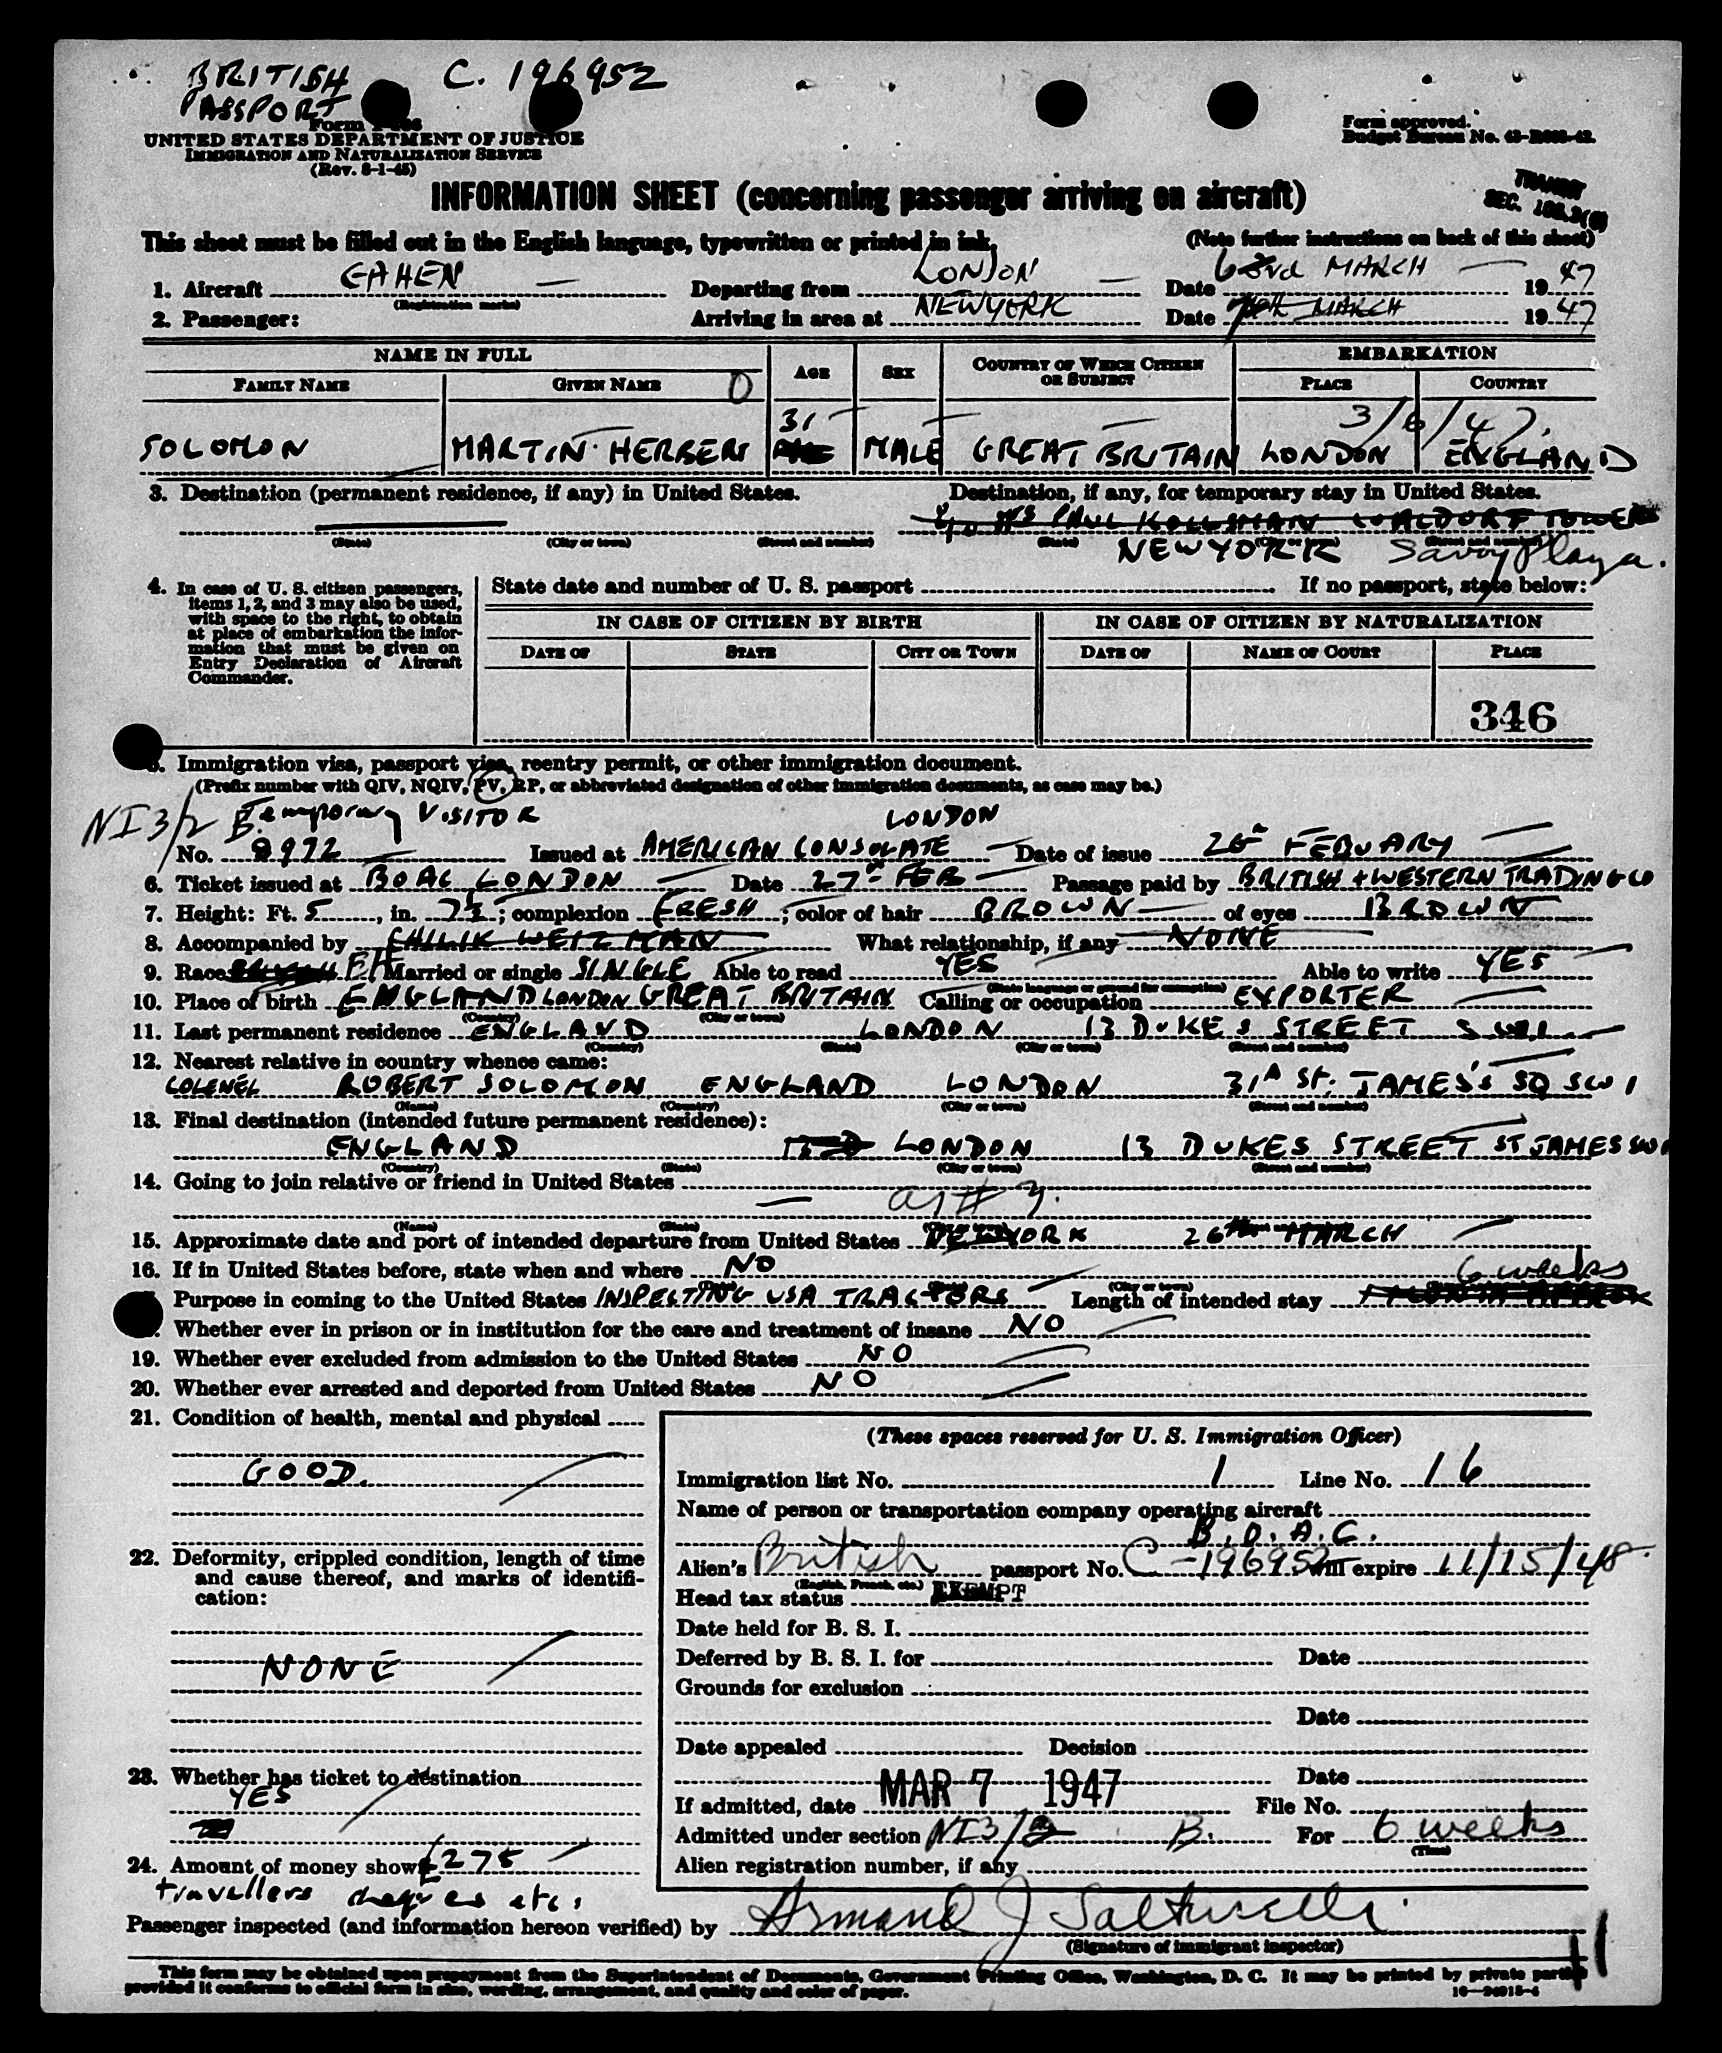 BRITISH C. 196952
PASSPORT
Form
UNITED STATES DEPARTMENT OF JUSTICE
IMMIGRATION AND NATURALIZATION SERVICE
(Rev. 8-1-45)
Form approved.
Budget Bureau No.
INFORMATION SHEET (concerning passenger arriving on aircraft)
TRANSIT
SEC.
This sheet must be filled out in the English language, typewritten or printed in ink.
(Note further instructions on back of this sheet)
1. Aircraft GAHEN Departing from LONDON Date 6 3rd MARCH 1947
(Registration marks)
2. Passenger: Arriving in area at NEWYORK Date 7th MARCH 1947
NAME IN FULL AGE SEX COUNTRY OF WHICH CITIZEN OR SUBJECT EMBARKATION
FAMILY NAME GIVEN NAME PLACE COUNTRY
O
31 3/6/47.
SOLOMON MARTIN HERBERT MALE GREAT BRITAIN LONDON ENGLAND
3. Destination (permanent residence, if any) in United States. Destination, if any, for temporary stay in United States.
PAUL KOLLSMAN WALDORF TOWERS
(State) (City or town) (Street and number) (State) (City or town) (Street and number)
NEW YORK Savoy Plaza.
4. In case of U. S. citizen passengers, items 1, 2, and 3 may also be used, with space to the right, to obtain at place of embarkation the information that must be given on Entry Declaration of Aircraft Commander.
State date and number of U. S. passport If no passport, state below:
IN CASE OF CITIZEN BY BIRTH IN CASE OF CITIZEN BY NATURALIZATION
DATE OF STATE CITY OR TOWN DATE OF NAME OF COURT PLACE
346
5. Immigration visa, passport visa, reentry permit, or other immigration document.
(Prefix number with QIV, NQIV, PV, RP, or abbreviated designation of other immigration documents, as case may be.)
NI 3/2 B. Temporary VISITOR LONDON
No. 8972 Issued at AMERICAN CONSULATE Date of issue 26th FEBUARY
6. Ticket issued at BOAC LONDON Date 27th FEB Passage paid by BRITISH + WESTERN TRADING CO
7. Height: Ft. 5, in. 7½; complexion FRESH; color of hair BROWN of eyes BROWN
8. Accompanied by CHILIK WEIZMAN What relationship, if any NONE
9. Race Married or single SINGLE Able to read YES Able to write YES
(State language or ground for exemption)
10. Place of birth ENGLAND LONDON GREAT BRITAIN Calling or occupation EXPORTER
(Country) (City or town)
11. Last permanent residence ENGLAND LONDON 13 DUKES STREET S W1
(Country) (State) (City or town) (Street and number)
12. Nearest relative in country whence came:
COLENEL ROBERT SOLOMON ENGLAND LONDON 31A ST. JAMES'S SQ SW1
(Name) (Country) (City or town) (Street and number)
13. Final destination (intended future permanent residence):
ENGLAND LONDON 13 DUKES STREET ST JAMES SW1
(Country) (State) (City or town) (Street and number)
14. Going to join relative or friend in United States
as # 3.
(Name) (State) (City or town) (Street and number)
15. Approximate date and port of intended departure from United States NEWYORK 26th MARCH
16. If in United States before, state when and where NO
(Date) (State) (City or town)
6 weeks
Purpose in coming to the United States INSPECTING USA TRACTORS Length of intended stay
Whether ever in prison or in institution for the care and treatment of insane NO
19. Whether ever excluded from admission to the United States NO
20. Whether ever arrested and deported from United States NO
21. Condition of health, mental and physical
GOOD.
22. Deformity, crippled condition, length of time and cause thereof, and marks of identification:
NONE
23. Whether has ticket to destination
YES
24. Amount of money shown £275
travellers cheques etc.
(These spaces reserved for U. S. Immigration Officer)
Immigration list No. 1 Line No. 16
Name of person or transportation company operating aircraft
B.O.A.C.
Alien's British passport No. C-196952 will expire 11/15/48.
(English, French, etc.)
Head tax status EXEMPT
Date held for B. S. I.
Deferred by B. S. I. for Date
Grounds for exclusion
Date
Date appealed Decision
Date
If admitted, date MAR 7 1947 File No.
Admitted under section NI3/2 B. For 6 weeks
(Time)
Alien registration number, if any
Passenger inspected (and information hereon verified) by Armand J
(Signature of immigrant inspector)
This form may be obtained upon prepayment from the Superintendent of Documents, Government Printing Office, Washington, D. C. It may be printed by private parties
provided it conforms to official form in size, wording, arrangement, and quality and color of paper.